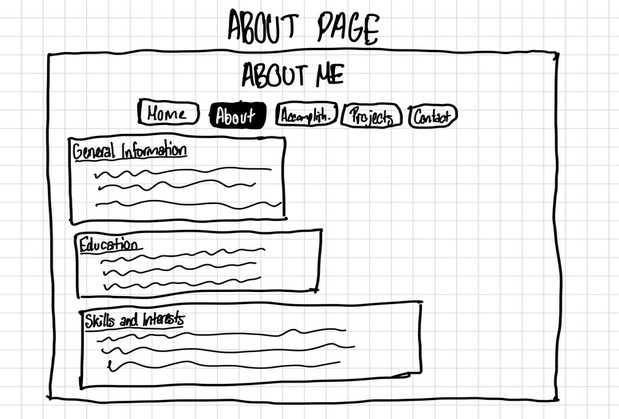 ABOUT PAGE
ABOUT ME
Home About Accomplish. Projects Contact
General Information
Education
Skills and Interests